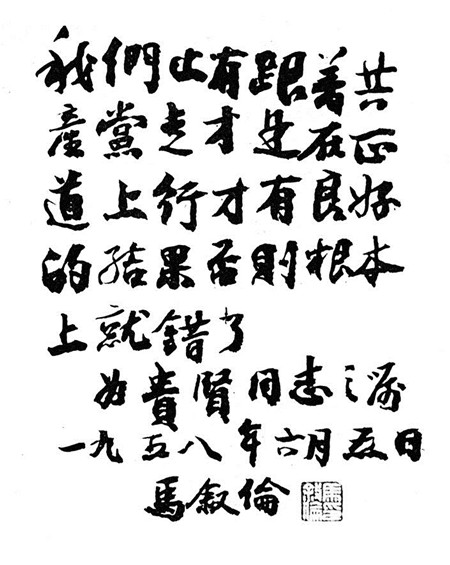 我們止有跟着共
產黨走才是在正
道上行才有良好
的結果否則根本
上就錯了
如貴賢同志之嘱
一九五八年六月五日
馬叙倫